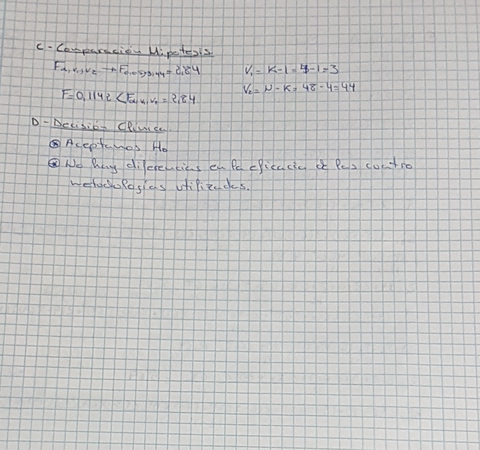 C - Comparación Hipotesis
Fα,v₁,v₂ → F0,05,3,44 = 2,84
V₁ = K-1 = 4-1 = 3
F = 0,1142 < Fα,v₁,v₂ = 2,84
V₂ = N - K = 48 - 4 = 44
D - Decisión Clínica
* Aceptamos H₀
* No hay diferencias en la eficacia de las cuatro
metodologías utilizadas.